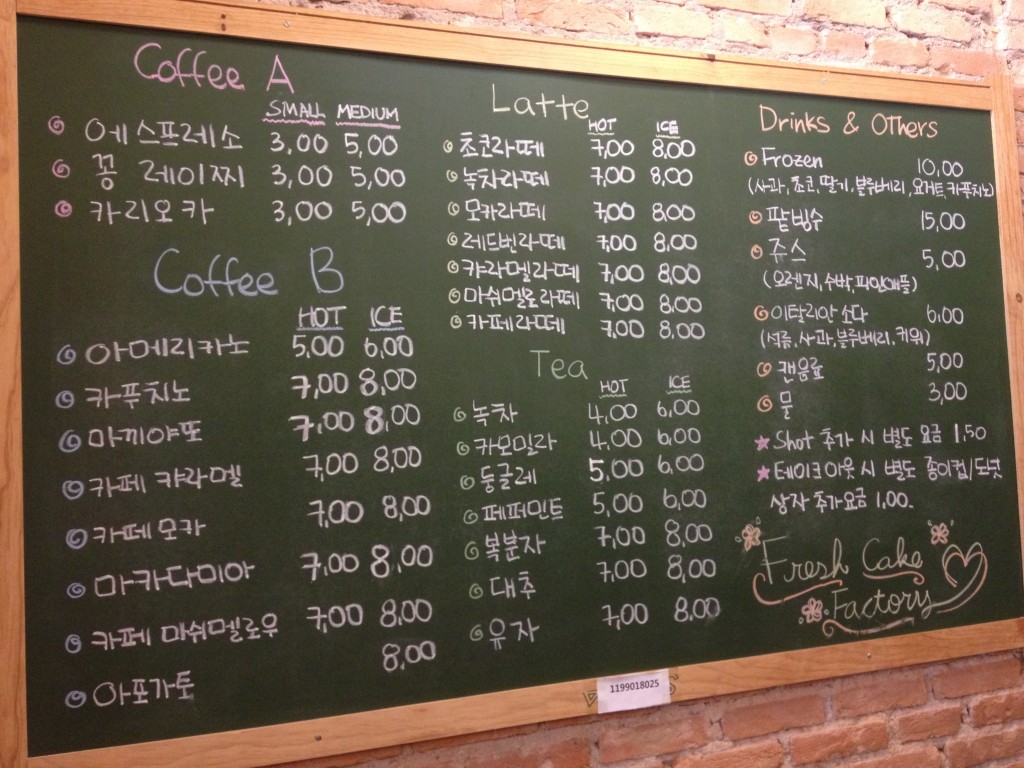 Coffee A
SMALL MEDIUM
에스프레소 3,00 5,00
꽁 레이찌 3,00 5,00
카리오카 3,00 5,00
Coffee B
HOT ICE
아메리카노 5,00 6,00
카푸치노 7,00 8,00
마끼야또 7,00 8,00
카페 캬라멜 7,00 8,00
카페 모카 7,00 8,00
마카다미아 7,00 8,00
카페 마쉬멜로우 7,00 8,00
아포가토 8,00
Latte
HOT ICE
초코라떼 7,00 8,00
녹차라떼 7,00 8,00
모카라떼 7,00 8,00
레드빈라떼 7,00 8,00
캬라멜라떼 7,00 8,00
마쉬멜로라떼 7,00 8,00
카페라떼 7,00 8,00
Tea
HOT ICE
녹차 4,00 6,00
카모밀라 4,00 6,00
둥글레 5,00 6,00
페퍼민트 5,00 6,00
복분자 7,00 8,00
대추 7,00 8,00
유자 7,00 8,00
Drinks & Others
Frozen 10,00
(사과, 초코, 딸기, 블루베리, 요거트, 카푸치노)
팥빙수 15,00
쥬스 5,00
(오렌지, 수박, 파인애플)
이탈리안 소다 6,00
(석류, 사과, 블루베리, 키위)
캔음료 5,00
물 3,00
★ Shot 추가 시 별도 요금 1,50
★ 테이크아웃 시 별도 종이컵/도넛
상자 추가요금 1,00.
Fresh Cake
Factory
1199018025